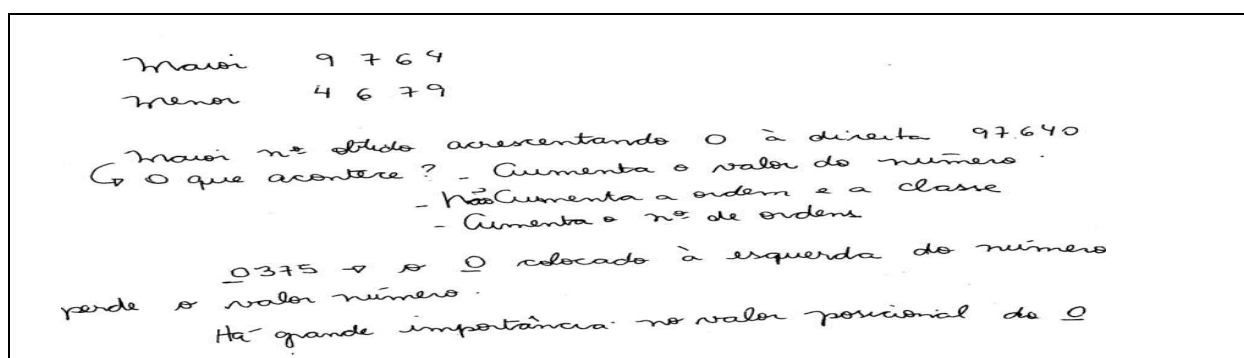 Maior 9 7 6 4
Menor 4 6 7 9
Maior nº obtido acrescentando 0 à direita 97.640
↳ O que acontece? - Aumenta o valor do número.
- Não Aumenta a ordem e a classe
- Aumenta o nº de ordens
0375 → o 0 colocado à esquerda do número
perde o valor número.
Há grande importância no valor posicional do 0